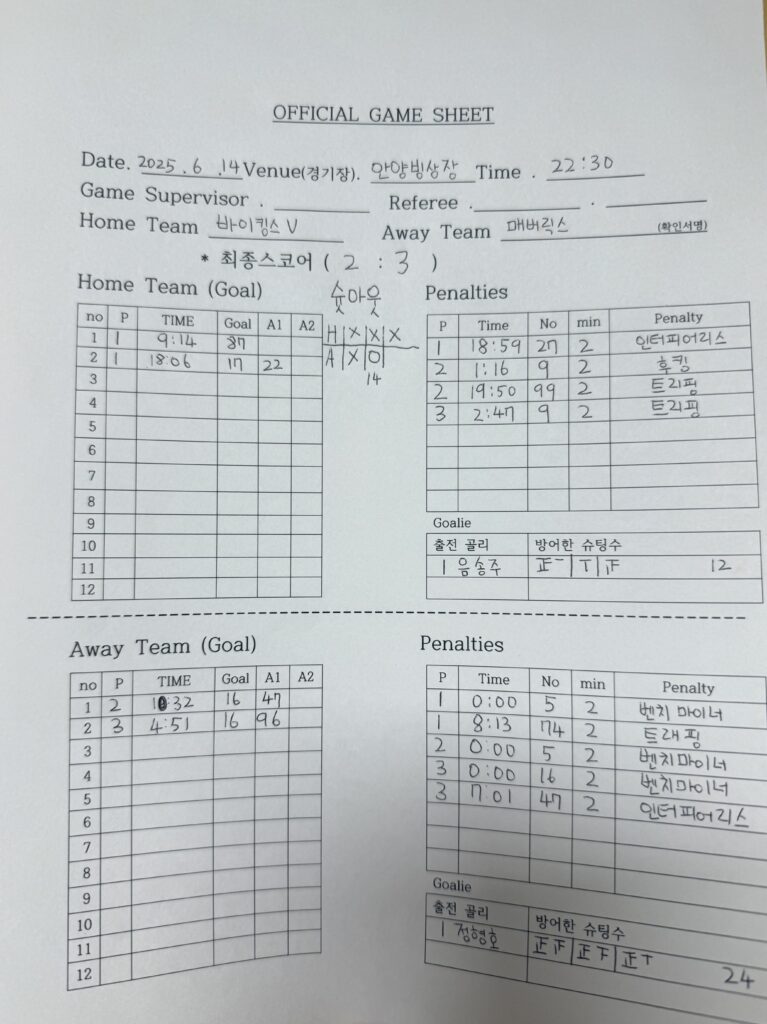 OFFICIAL GAME SHEET
Date. 2025. 6 .14 Venue(경기장). 안양빙상장 Time . 22:30
Game Supervisor . Referee . .
Home Team 바이킹스 V Away Team 매버릭스 (확인서명)
* 최종스코어 ( 2 : 3 )
Home Team (Goal)
no P TIME Goal A1 A2
1 1 9:14 87
2 1 18:06 17 22
3
4
5
6
7
8
9
10
11
12
슛아웃
H X X X
A X O
14
Penalties
P Time No min Penalty
1 18:59 27 2 인터피어리스
2 1:16 9 2 후킹
2 19:50 99 2 트리핑
3 2:47 9 2 트리핑
Goalie
출전 골리 방어한 슈팅수
1 음송주 正一 | T | 正 12
Away Team (Goal)
no P TIME Goal A1 A2
1 2 10:32 16 47
2 3 4:51 16 96
3
4
5
6
7
8
9
10
11
12
Penalties
P Time No min Penalty
1 0:00 5 2 벤치마이너
1 8:13 74 2 트래핑
2 0:00 5 2 벤치마이너
3 0:00 16 2 벤치마이너
3 7:01 47 2 인터피어리스
Goalie
출전 골리 방어한 슈팅수
1 정형호 正 F | 正 F | 正 T 24